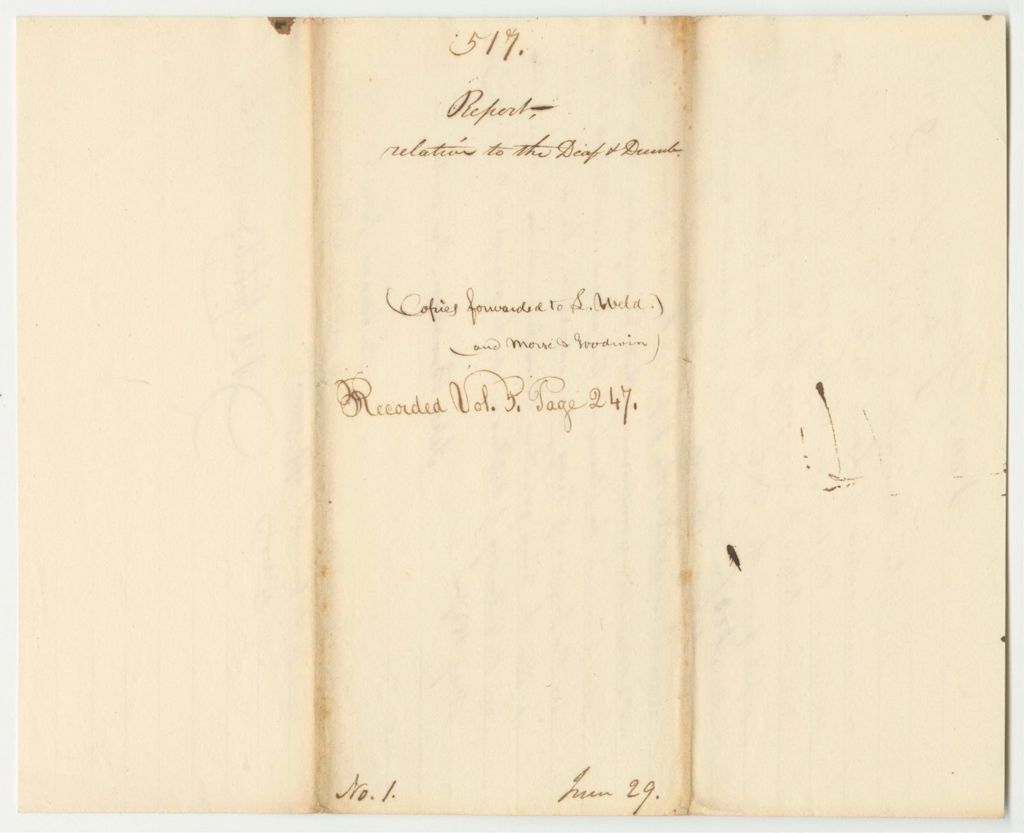 517.
Report,
relative to the Deaf & Dumb.
(Copies forwarded to L. Weld.)
(and Morse & Goodwin)
Recorded Vol. 3. Page 247.
No. 1. June 29.